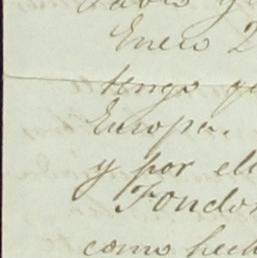 Enero 2
tengo
Europa.
y por el
Fondo
como hech